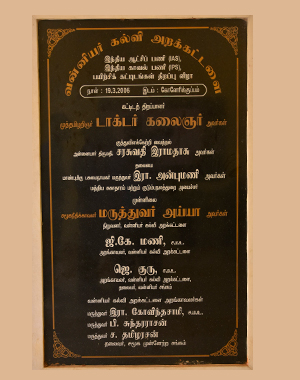 வன்னியர் கல்வி அறக்கட்டளை
இந்திய ஆட்சிப் பணி (IAS),
இந்திய காவல் பணி (IPS),
பயிற்சிக் கட்டிடங்கள் திறப்பு விழா
நாள் : 19.3.2006 இடம் : கோனேரிக்குப்பம்
கட்டிடத் திறப்பாளர்
முத்தமிழறிஞர் டாக்டர் கலைஞர் அவர்கள்
குத்துவிளக்கேற்றி வைத்தல்
அன்னையர் திருமதி. சரசுவதி இராமதாசு அவர்கள்
தலைமை
மாண்புமிகு மருத்துவர் இரா. அன்புமணி அவர்கள்
மத்திய சுகாதாரம் மற்றும் குடும்பநலத்துறை அமைச்சர்
முன்னிலை
மருத்துவர் அய்யா அவர்கள்
நிறுவனர், வன்னியர் கல்வி அறக்கட்டளை
ஜி.கே. மணி,
அறங்காவலர், வன்னியர் கல்வி அறக்கட்டளை
ஜெ. குரு,
அறங்காவலர், வன்னியர் கல்வி அறக்கட்டளை,
தலைவர், வன்னியர் சங்கம்
வன்னியர் கல்வி அறக்கட்டளை அறங்காவலர்கள்
மருத்துவர் இரா. கோவிந்தசாமி,
மருத்துவர் பி. சுந்தரராசன்
மருத்துவர் ச. தமிழரசன்
தலைவர், சமூக முன்னேற்ற சங்கம்